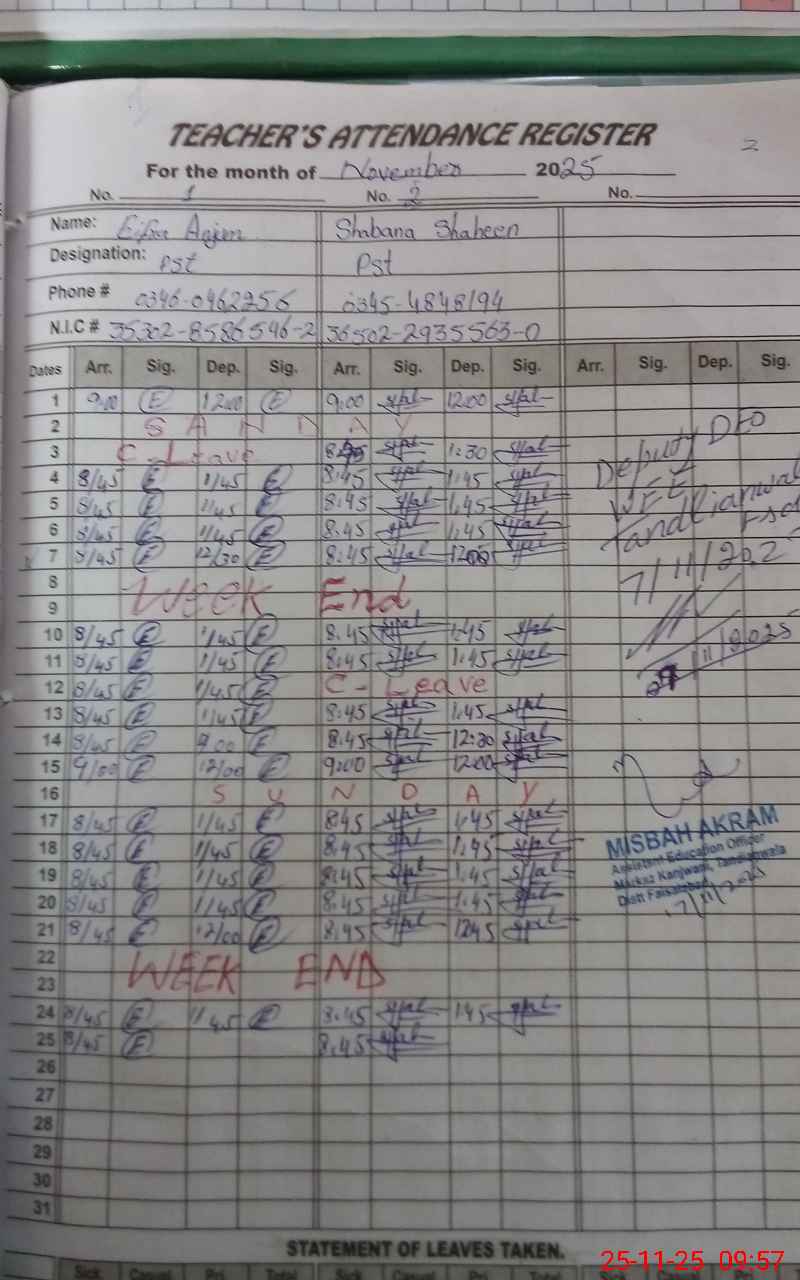 2
TEACHER'S ATTENDANCE REGISTER
For the month of November 2025
No. 1 No. 2 No.
Name: Anjum Shabana Shaheen
Designation: Pst Pst
Phone # 0346-0462256 0345-4848194
N.I.C # 35302-8586546-2 36502-2935563-0
Dates Arr. Sig. Dep. Sig. Arr. Sig. Dep. Sig. Arr. Sig. Dep. Sig.
1 9:00 E 12:00 E 9:00 12:00
2 S A N D A Y
3 C-Leave 8:45 1:30
4 8/45 E 1/45 E 8:45 1:45
5 8/45 E 1/45 E 8:45 1:45
6 8/45 E 1/45 E 8:45 1:45
7 8/45 E 12/30 E 8:45 12:00
8
WEEK End
9
10 8/45 E 1/45 E 8:45 1:45
11 8/45 E 1/45 E 8:45 1:45
12 8/45 E 1/45 E C-Leave
13 8/45 E 1/45 E 8:45 1:45
14 8/45 E E 8:45 12:30
15 9/00 E 12/00 E 9:00 12:00
16 S U N D A Y
17 8/45 E 1/45 E 8:45 1:45
18 8/45 E 1/45 E 8:45 1:45
19 8/45 E 1/45 E 8:45 1:45
20 8/45 E 1/45 E 8:45 1:45
21 8/45 E 12/00 E 8:45 12:45
22
WEEK END
23
24 8/45 E 1/45 E 8:45 1:45
25 8/45 E 8:45
26
27
28
29
30
31
Deputy DEO
WEE
Tandlianwala
Fsd
7/11/202
11/2025
MISBAH AKRAM
Assistant Education Officer
Markaz Kanjwani, Tandlianwala
Distt Faisalabad
17/11/2025
STATEMENT OF LEAVES TAKEN.
Sick Casual Pri. Total Sick Casual Pri. Total Sick
25-11-25 09:57